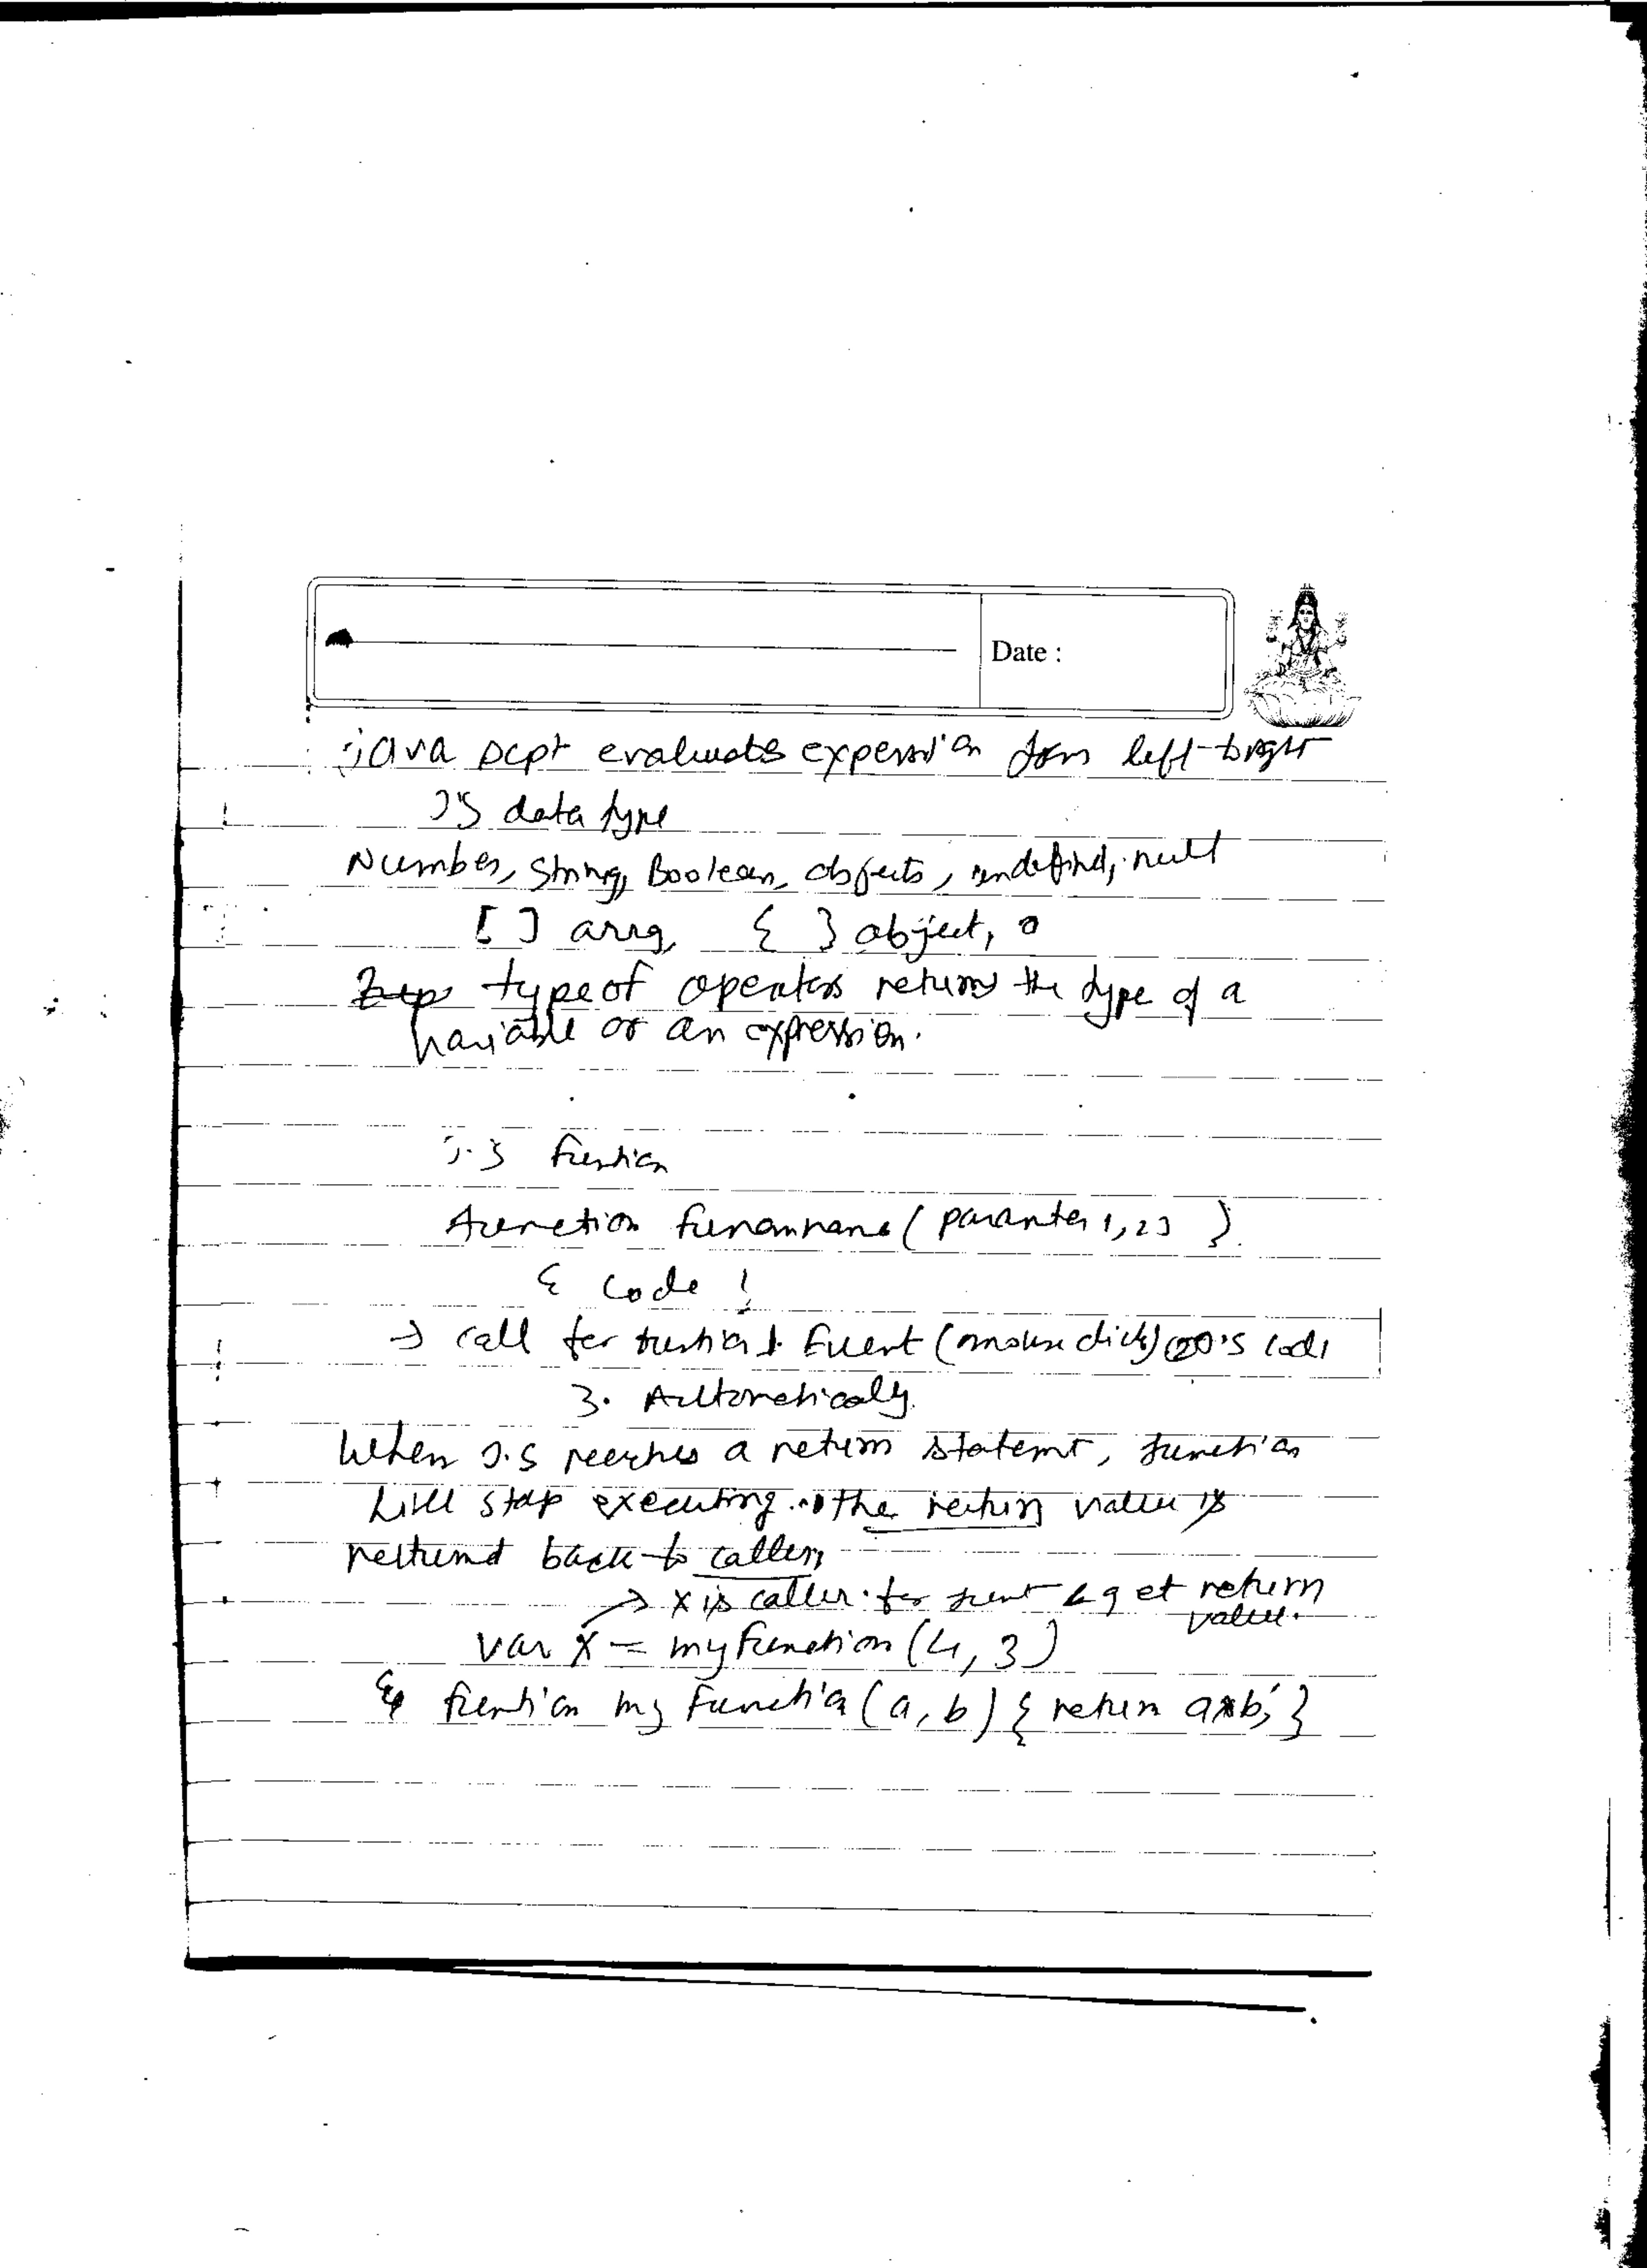 Date :
java script evaluates expression from left to right
JS data type
Number, String, Boolean, objects, undefind, null
[ ] array, { } object,
typeof operators returns the type of a
variable or an expression.
J.S function
function funcnname ( paramter 1, 2 )
{ code }
→ call for function 1. Event (mouse click) 2. J.S code
3. Automatically.
When J.S reaches a return statemt, function
will stop executing. the return value is
returned back to caller,
→ x is caller for & get return
value.
var x = myfunction (4, 3)
function my Function (a, b) { return a*b; }